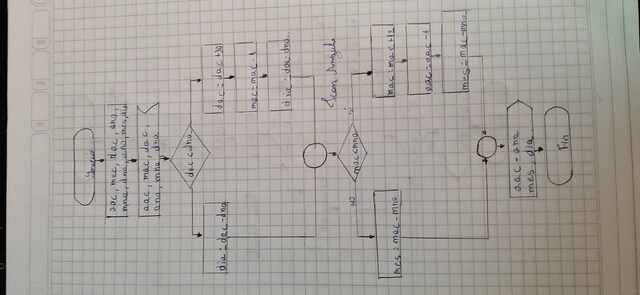 Inicio
aac, mac, dac, ana,
mna, dna, año, mes, dia
aac, mac, dac,
ana, mna, dna
dac < dna
dia = dac - dna
dac = dac + 30
mac = mac - 1
dia = dac - dna
Jean Angulo
mac < mna
NO
si
mes = mac - mna
mac = mac + 12
aac = aac - 1
mes = mac - mna
aac - ana
mes, dia
Fin